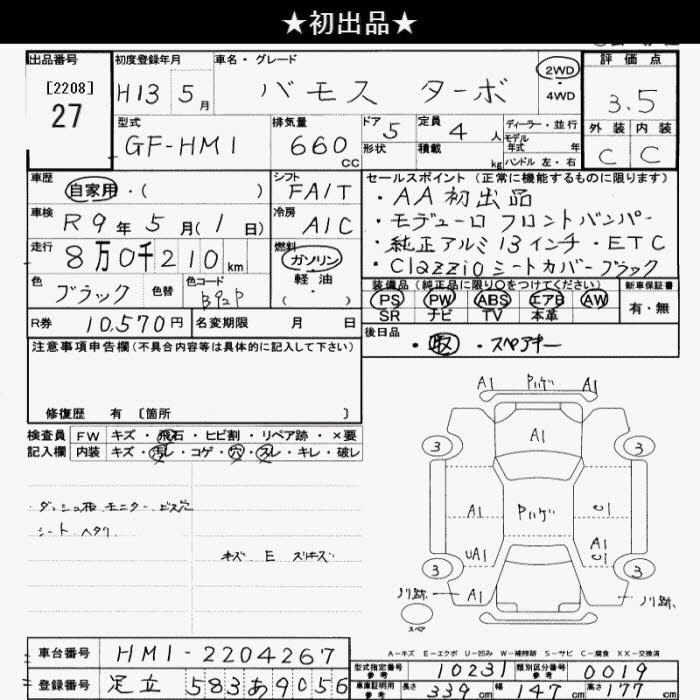 ★初出品★
出品番号 初度登録年月 車名・グレード 評価点
[2208]
27
H13 5月 バモス ターボ 2WD 4WD 3.5
型式 排気量 ドア 定員 ディーラー・並行 外装 内装
GF-HM1 660 CC 5 4人 モデル年式 年式 C C
形状 積載 kg ハンドル 左・右
車歴 シフト セールスポイント (正常に機能するものに限ります)
自家用・( ) FAIT ・AA初出品
車検 R9年5月(1日) 冷房 AIC ・モデューロ フロントバンパー
走行 8万0千210km 燃料 ガソリン 軽油 ( ) ・純正アルミ13インチ・ETC
色 ブラック 色替 色コード B92P ・Clazzioシートカバーブラック
装備品 (純正品に限り○をつけてください) 新車保証書
PS PW ABS エアB AW 有・無
SR ナビ TV 本革
R券 10,570円 名変期限 月 日
後日品 ・取 ・スペアキー
注意事項申告欄(不具合内容等は具体的に記入して下さい)
修復歴 有 [箇所 ]
検査員 FW キズ・飛石・ヒビ割・リペア跡・×要
記入欄 内装 キズ・汚レ・コゲ・穴・スレ・キレ・破レ
ダッシュ板 モニター ビス穴
シート ヘタリ
キズ E スリキズ
A1 Pハゲ A1
A1
3 3
A1 Pハゲ C1
UA1 A1 C
3 3
ノリ跡 A1 ノリ跡
スペア
A-キズ E-エクボ U-凹み W-補修跡 S-サビ C-腐食 XX-交換済
車台番号 HM1-2204267
登録番号 足立 583 あ 9056
型式指定番号 参考 10231 類別区分番号 参考 0019
車庫証明用 参考 長さ 339cm 幅 147cm 高さ 177cm